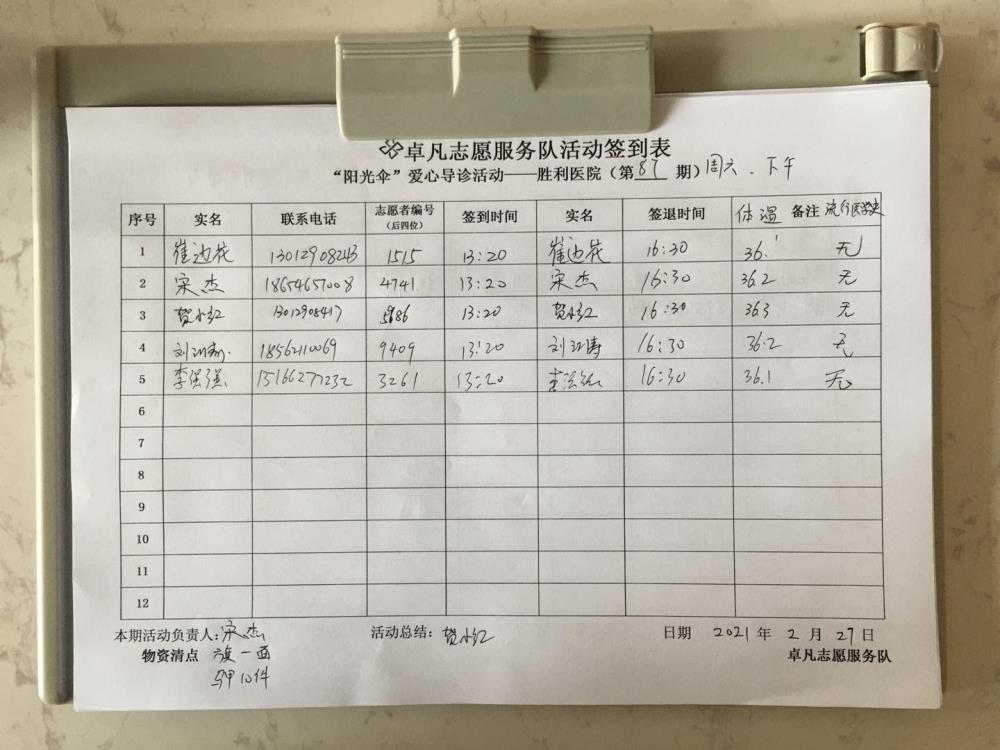 卓凡志愿服务队活动签到表
“阳光伞”爱心导诊活动——胜利医院（第87期）周六.下午
序号 实名 联系电话 志愿者编号（后四位） 签到时间 实名 签退时间 体温 备注 流行医学史
1 崔边花 13012908243 1515 13:20 崔边花 16:30 36.1 无
2 宋杰 18654657008 4741 13:20 宋杰 16:30 36.2 无
3 贺小红 13012908417 13:20 贺小红 16:30 36.3 无
4 18562110069 9409 13:20 16:30 36.2 无
5 15166277232 3261 13:20 16:30 36.1 无
6
7
8
9
10
11
12
本期活动负责人：宋杰 活动总结：贺小红 日期 2021年2月27日
物资清点 旗一面 卓凡志愿服务队
马甲10件